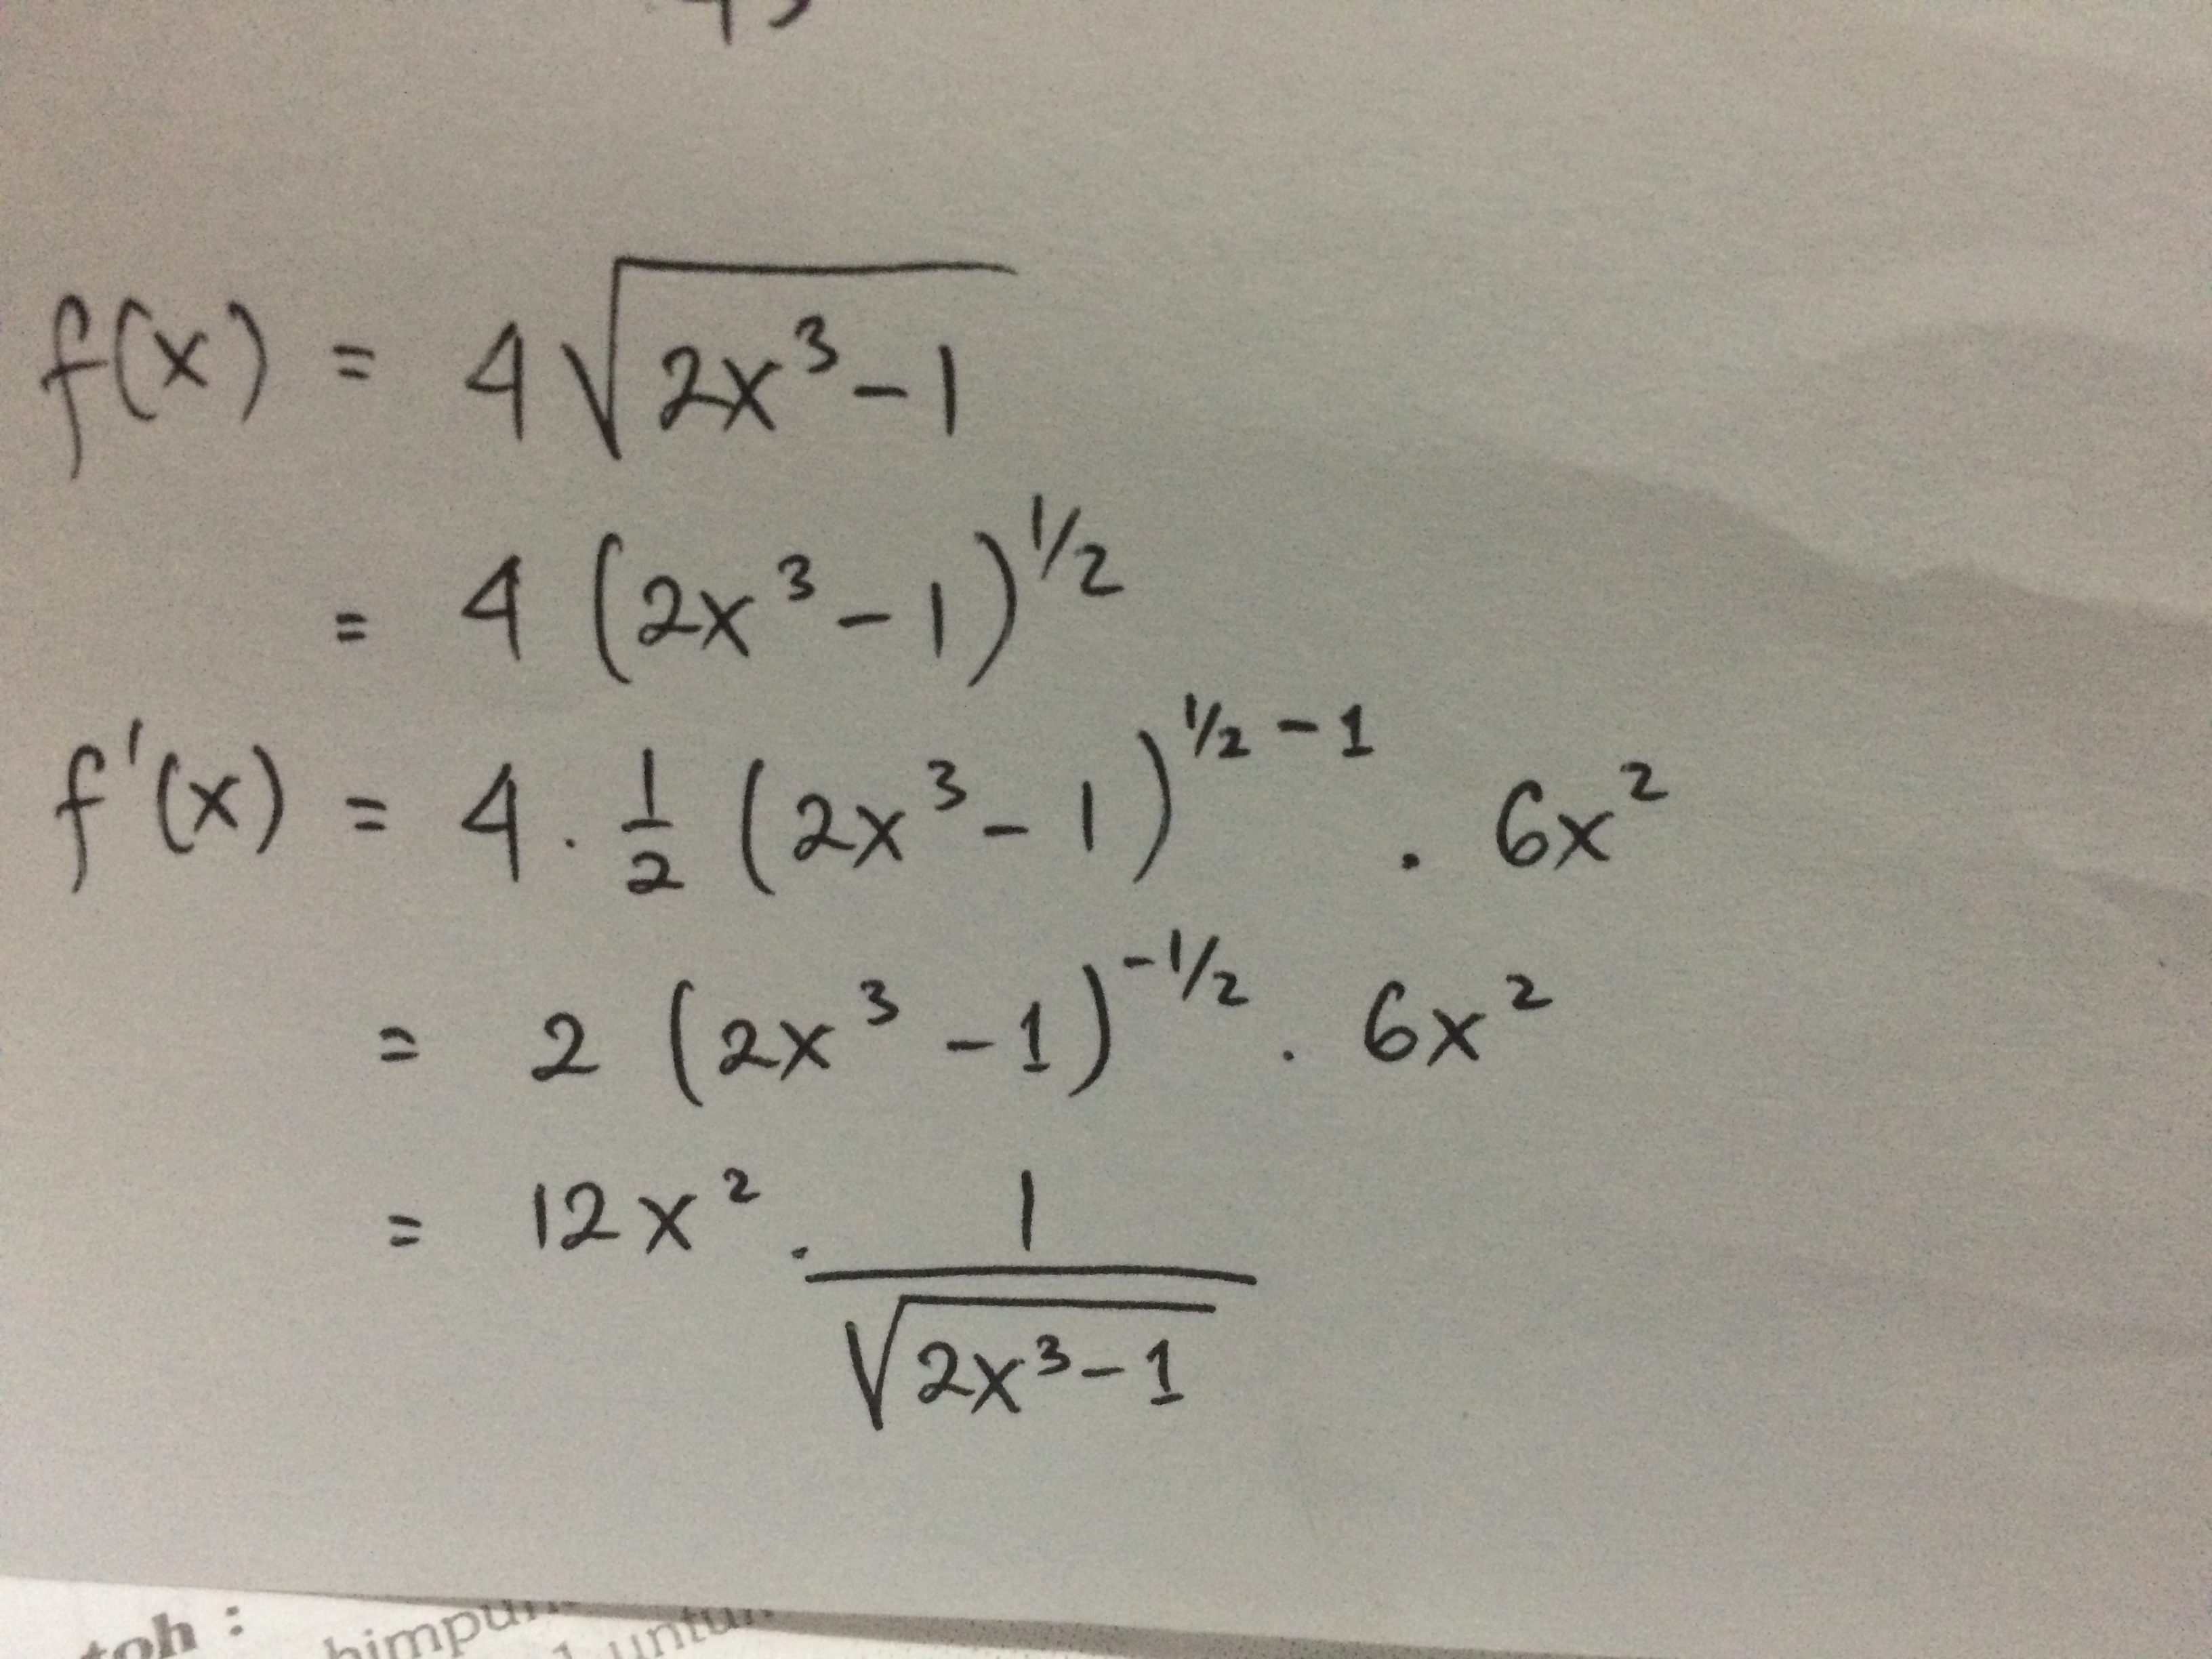 f(x) = 4√(2x³-1)
= 4 (2x³-1)^1/2
f'(x) = 4 . 1/2 (2x³-1)^1/2-1 . 6x²
= 2 (2x³-1)^-1/2 . 6x²
= 12x² . 1/√(2x³-1)